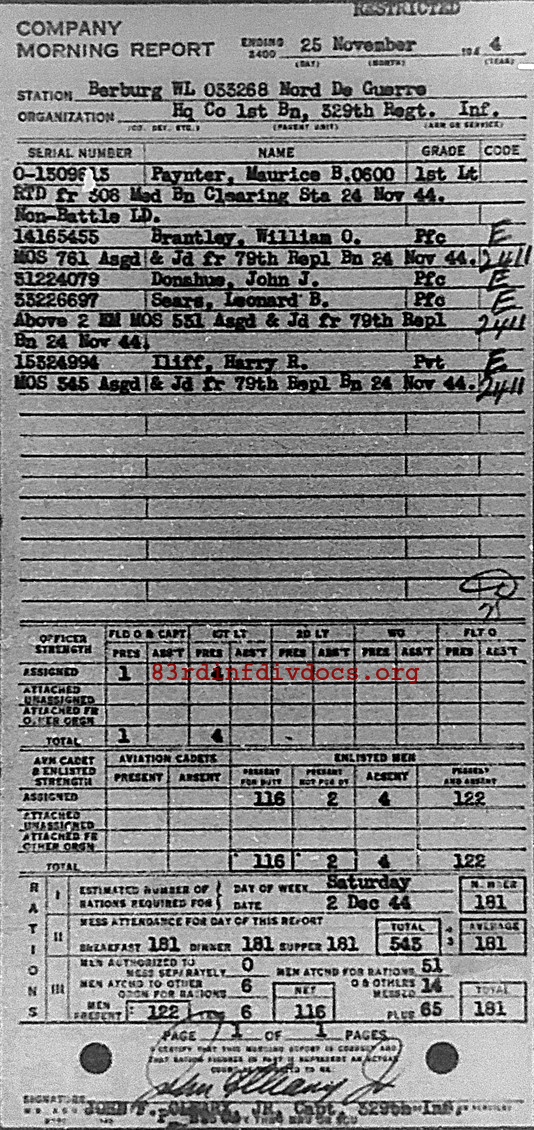 RESTRICTED
COMPANY
MORNING REPORT ENDING 2400 25 November 194 4
(DAY) (MONTH) (YEAR)
STATION Berburg WL 033268 Nord De Guerre
ORGANIZATION Hq Co 1st Bn, 329th Regt. Inf.
(CO. DET. ETC.) (PARENT UNIT) (ARM OR SERVICE)
SERIAL NUMBER NAME GRADE CODE
Paynter, Maurice B.0600 1st Lt
RTD fr 308 Med Bn Clearing Sta 24 Nov 44.
Non-Battle LD.
14165455 Brantley, William O. Pfc E
MOS 761 Asgd & Jd fr 79th Repl Bn 24 Nov 44. 2411
31224079 Donahue, John J. Pfc E
33226697 Sears, Leonard B. Pfc E
Above 2 EM MOS 531 Asgd & Jd fr 79th Repl 2411
Bn 24 Nov 44.
15324994 Iliff, Harry R. Pvt E
MOS 345 Asgd & Jd fr 79th Repl Bn 24 Nov 44. 2411
OFFICER STRENGTH FLD O & CAPT 1ST LT 2D LT WO FLT O
PRES ABS'T PRES ABS'T PRES ABS'T PRES ABS'T PRES ABS'T
ASSIGNED 1 4
83rdinfdivdocs.org
ATTACHED UNASSIGNED
ATTACHED FR OTHER ORGN
TOTAL 1 4
AVN CADET & ENLISTED STRENGTH AVIATION CADETS ENLISTED MEN
PRESENT ABSENT PRESENT FOR DUTY PRESENT NOT FOR DY ABSENT PRESENT AND ABSENT
ASSIGNED 116 2 4 122
ATTACHED UNASSIGNED
ATTACHED FR OTHER ORGN
TOTAL 116 2 4 122
RATIONS
I ESTIMATED NUMBER OF RATIONS REQUIRED FOR DAY OF WEEK Saturday NUMBER
DATE 2 Dec 44 181
II MESS ATTENDANCE FOR DAY OF THIS REPORT TOTAL AVERAGE
BREAKFAST 181 DINNER 181 SUPPER 181 543 ÷ 3 181
III MEN AUTHORIZED TO MESS SEPARATELY 0 MEN ATCHD FOR RATIONS 51
MEN ATCHD TO OTHER ORGN FOR RATIONS 6 NET O & OTHERS MESSED 14 TOTAL
MEN PRESENT 122 6 116 PLUS 65 181
PAGE 1 OF 1 PAGES
I CERTIFY THAT THIS MORNING REPORT IS CORRECT AND
SIGNATURE
JOHN F. OLEARY, JR, Capt. 329th Inf.